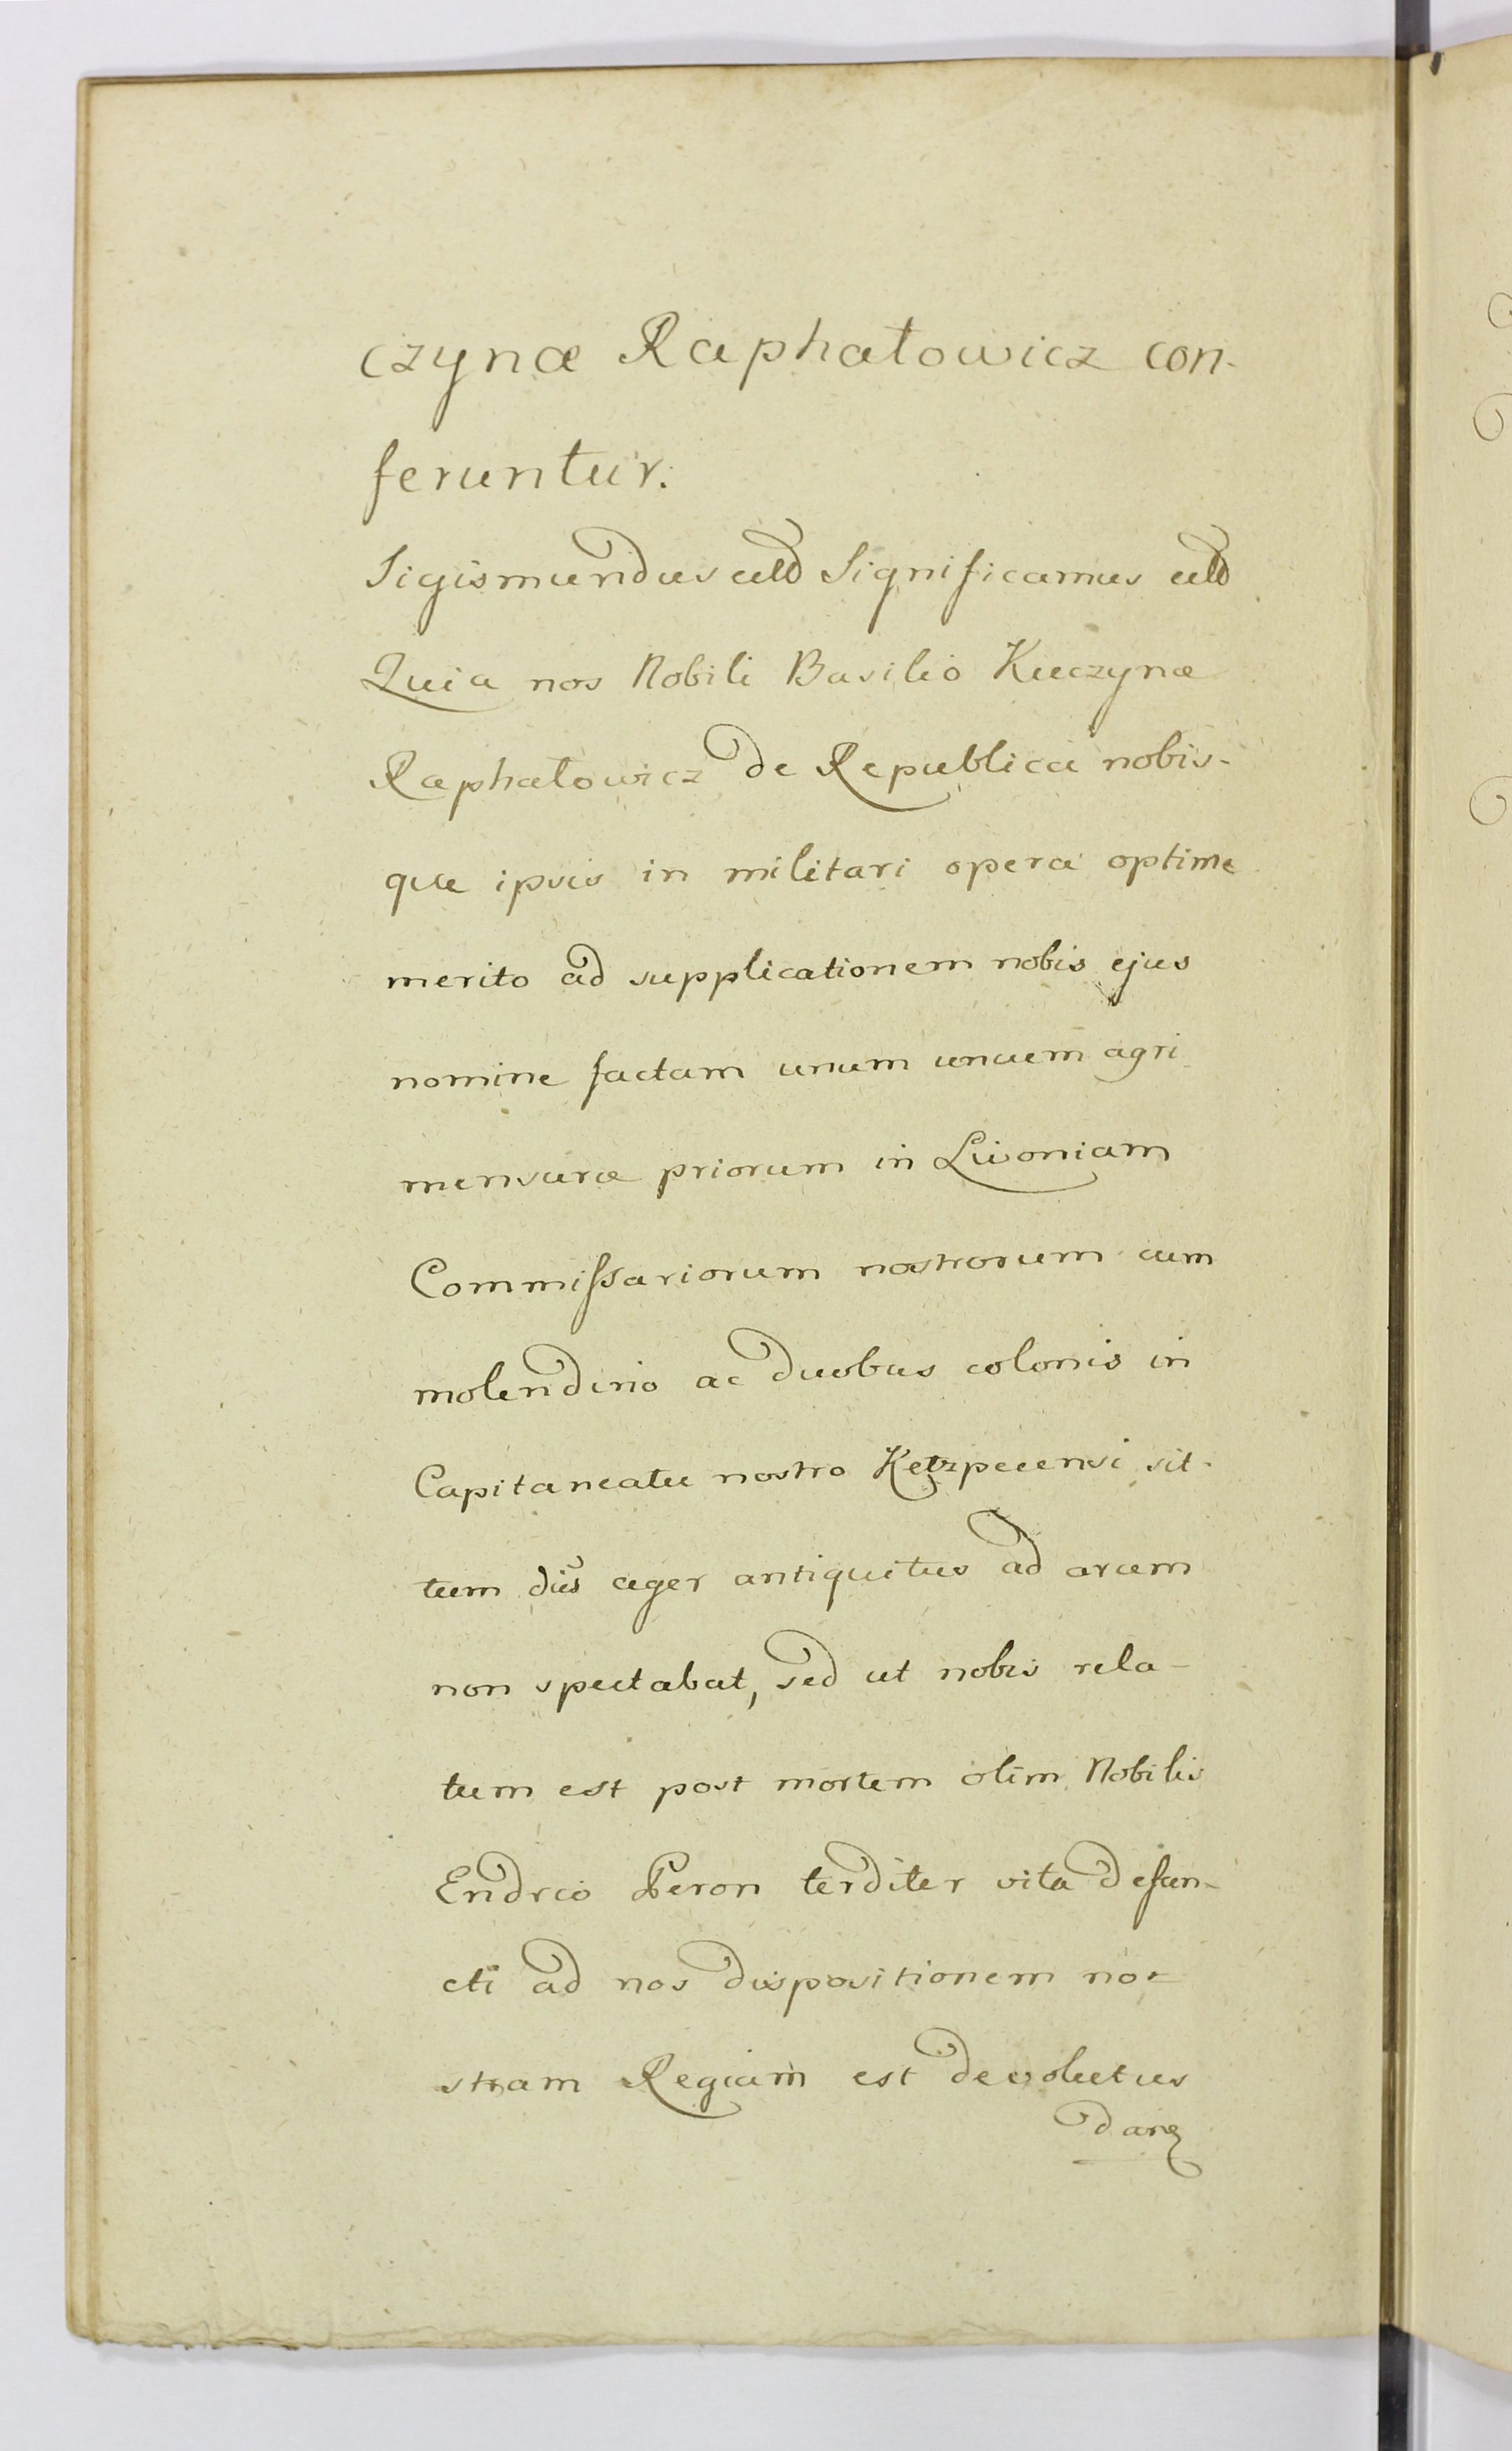 czynæ Raphałowicz con-
feruntur.
Sigismundus etc Significamus etc
Quia nos Nobili Basilio Kuczynæ
Raphałowicz de Republica nobis-
que ipsis in militari opera optime
merito ad supplicationem nobis ejus
nomine factam unum uncum agri
mensuræ priorum in Livoniam
Commissariorum nostrorum cum
molendino ac duobus colonis in
Capitaneatu nostro sit-
tum ager antiquitus ad arcem
non spectabat, sed ut nobis rela-
tum est post mortem olim Nobilis
Endrio Peron terditer vita defun-
cti ad nos dispositionem no-
stram Regiam est devolutus